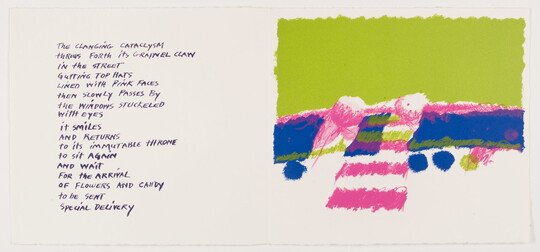 THE CLANGING CATACLYSM
THROWS FORTH ITS GRAPNEL CLAW
IN THE STREET
GUTTING TOP HATS
LINED WITH PINK FACES
THEN SLOWLY PASSES BY
THE WINDOWS STUCKELED
WITH EYES
it SMILES
AND RETURNS
TO ITS IMMUTABLE THRONE
TO SIT AGAIN
AND WAIT
FOR THE ARRIVAL
OF FLOWERS AND CANDY
to be SENT
SPECIAL DELIVERY